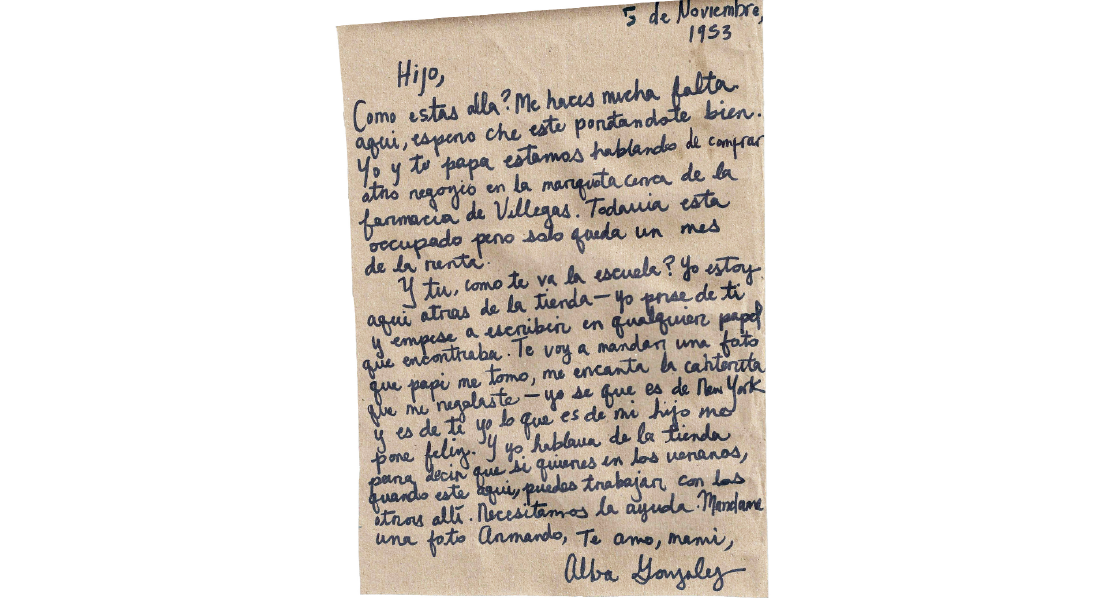 5 de Noviembre,
1953
Hijo,
Como estas alla? Me haces mucha falta.
aqui, espero che este portandote bien.
Yo y tu papa estamos hablando de comprar
otro negozio en la marqueta cerca de la
farmacia de Villegas. Todavia esta
occupado pero solo queda un mes
de la renta.
Y tu, como te va la escuela? Yo estoy
aqui atras de la tienda — yo pense de ti
y empese a escribir en qualquier papel
que encontraba. Te voy a mandar una foto
que papi me tomo, me encanta la carterita
que me regalaste — yo se que es de New York
y es de ti yo lo que es de mi hijo me
pone feliz. Y yo hablava de la tienda
para decir que si quieres en los veranos,
quando este aqui, puedes trabajar con los
otros alli. Necesitamos la ayuda. Mandame
una foto Armando, Te amo, mami,
Alba Gonzalez